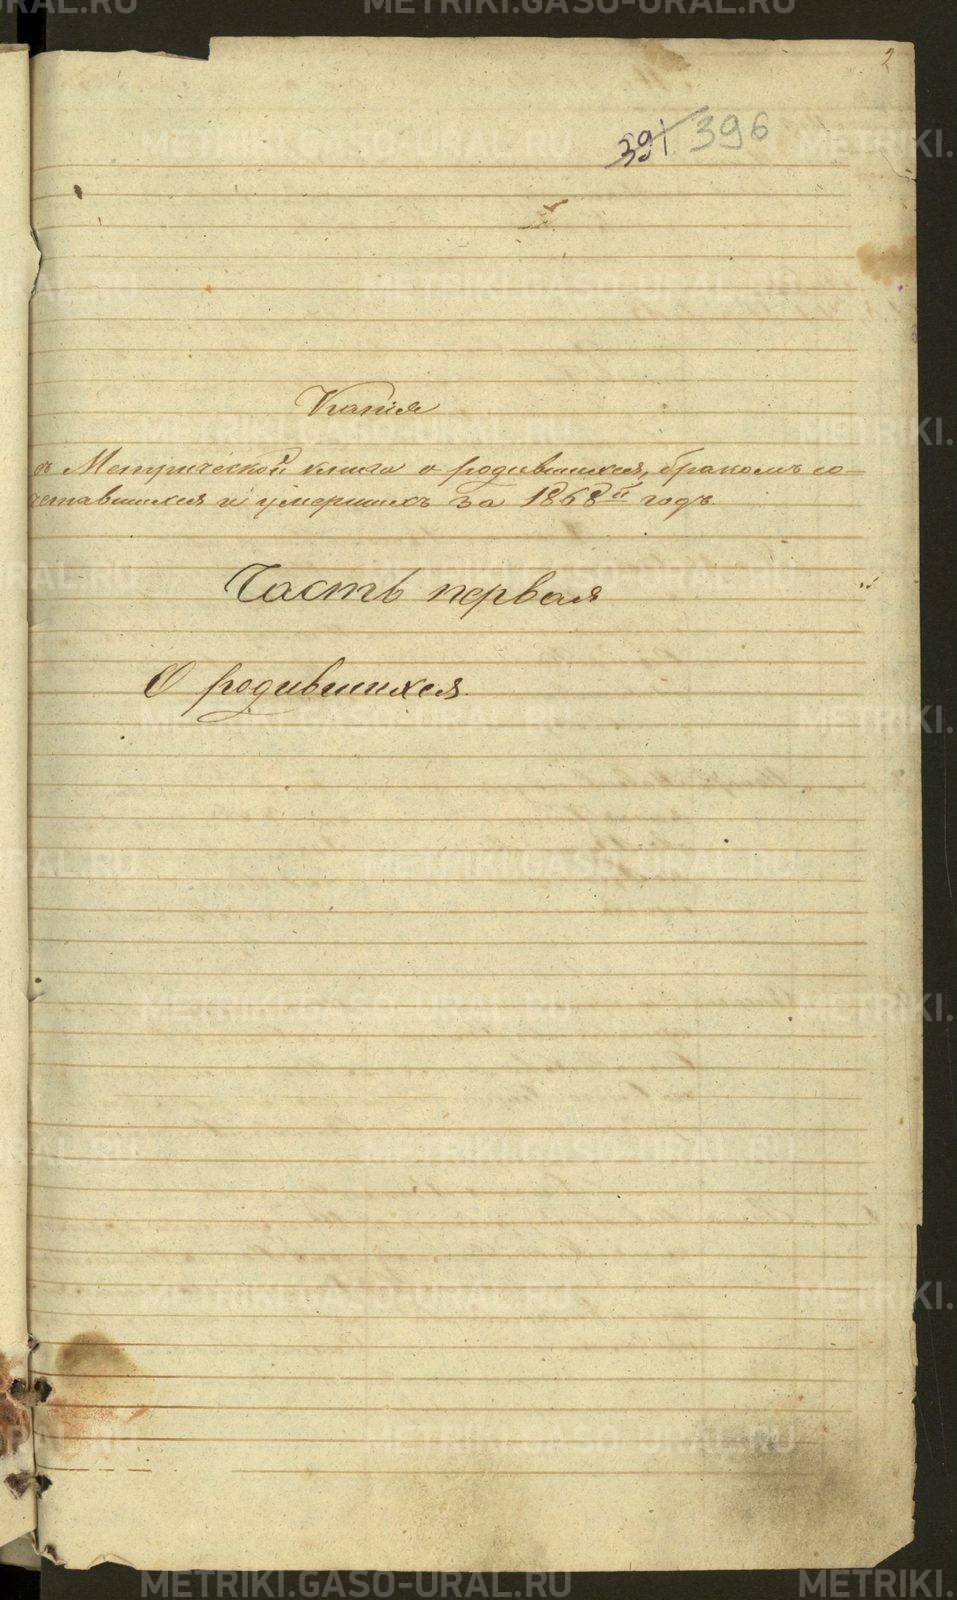 2
391 396
Копія
съ Метрической книги о родившихся, бракомъ со-
четавшихся и умершихъ за 1868й годъ.
Часть первая
О родившихся.
METRIKI.GASO-URAL.RU